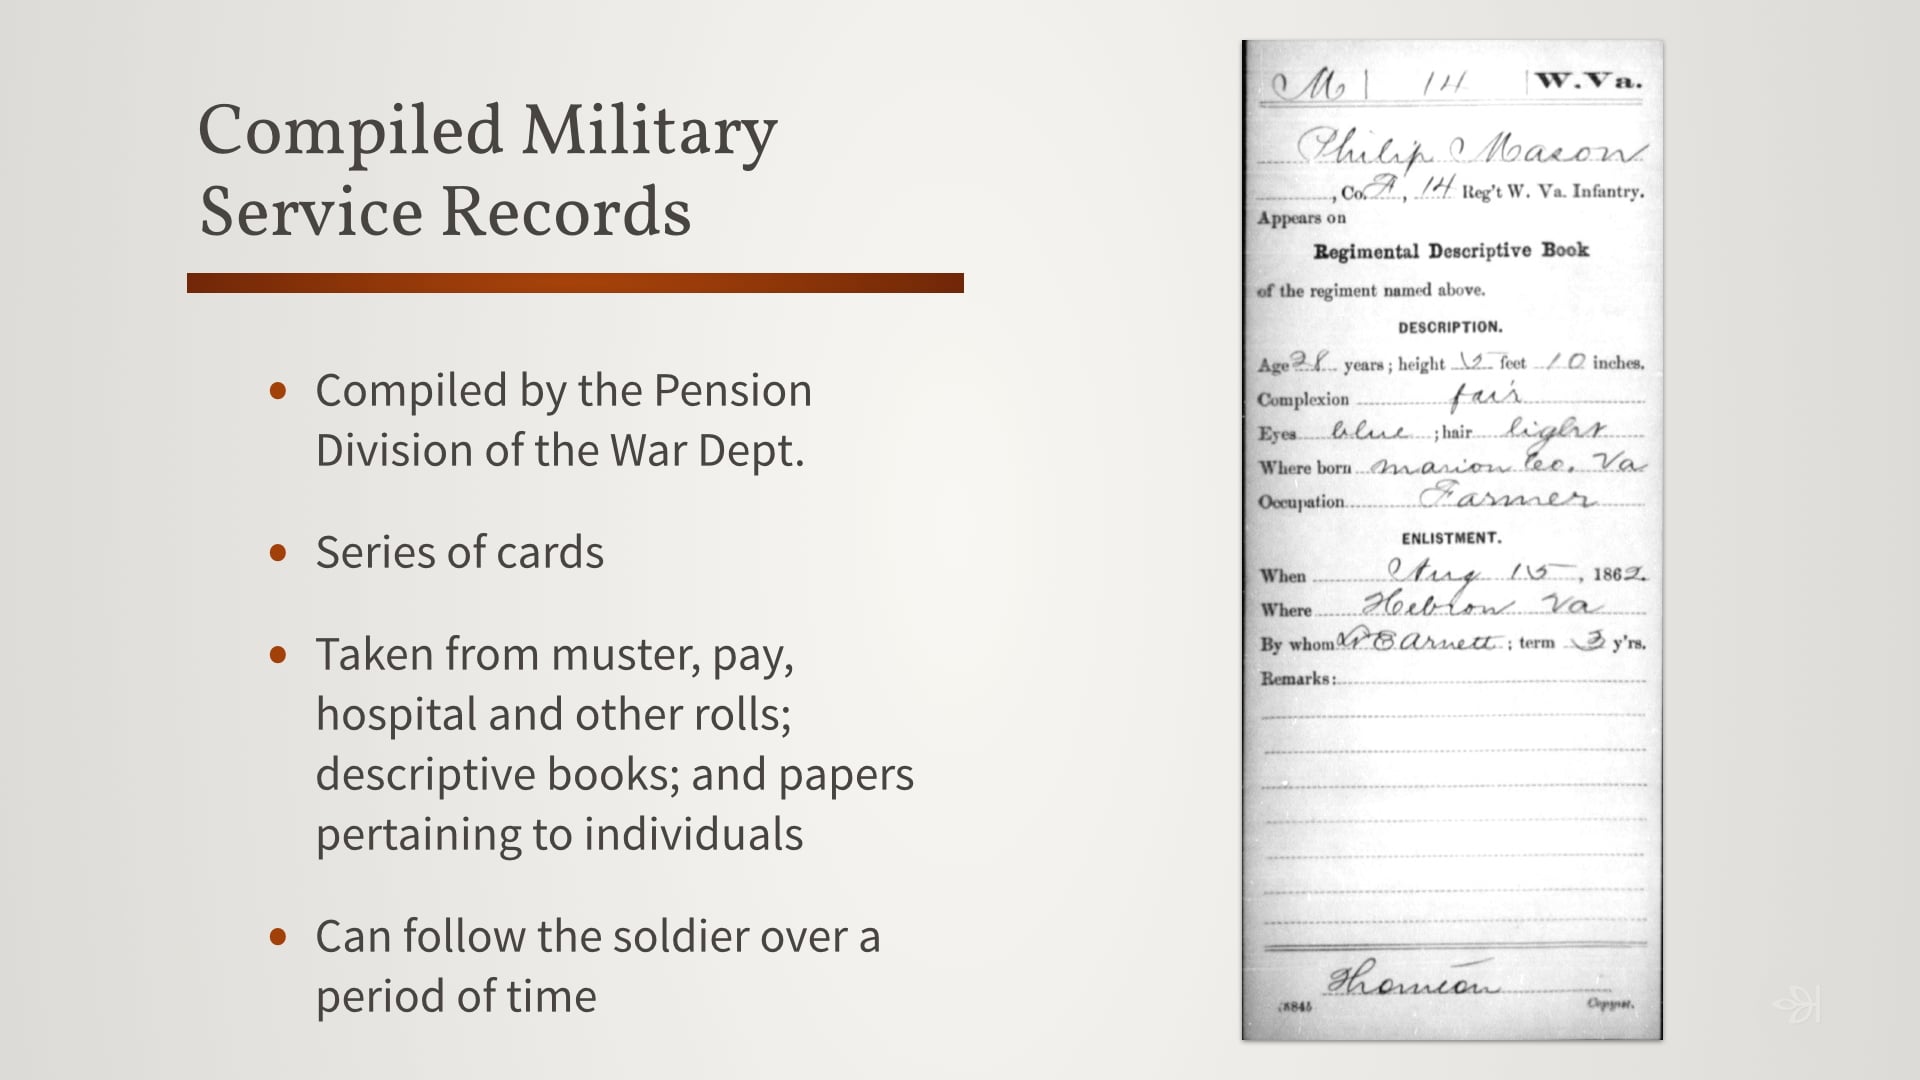 Compiled Military
Service Records
• Compiled by the Pension
Division of the War Dept.
• Series of cards
• Taken from muster, pay,
hospital and other rolls;
descriptive books; and papers
pertaining to individuals
• Can follow the soldier over a
period of time
M | 14 | W.Va.
Philip Mason
, Co. F, 14 Reg't W. Va. Infantry.
Appears on
Regimental Descriptive Book
of the regiment named above.
DESCRIPTION.
Age 28 years; height 5 feet 10 inches.
Complexion fair
Eyes blue; hair light
Where born Marion Co. Va
Occupation Farmer
ENLISTMENT.
When Aug 15, 1862.
Where Hebron Va
By whom Arnett; term 3 y'rs.
Remarks:
Copyist.